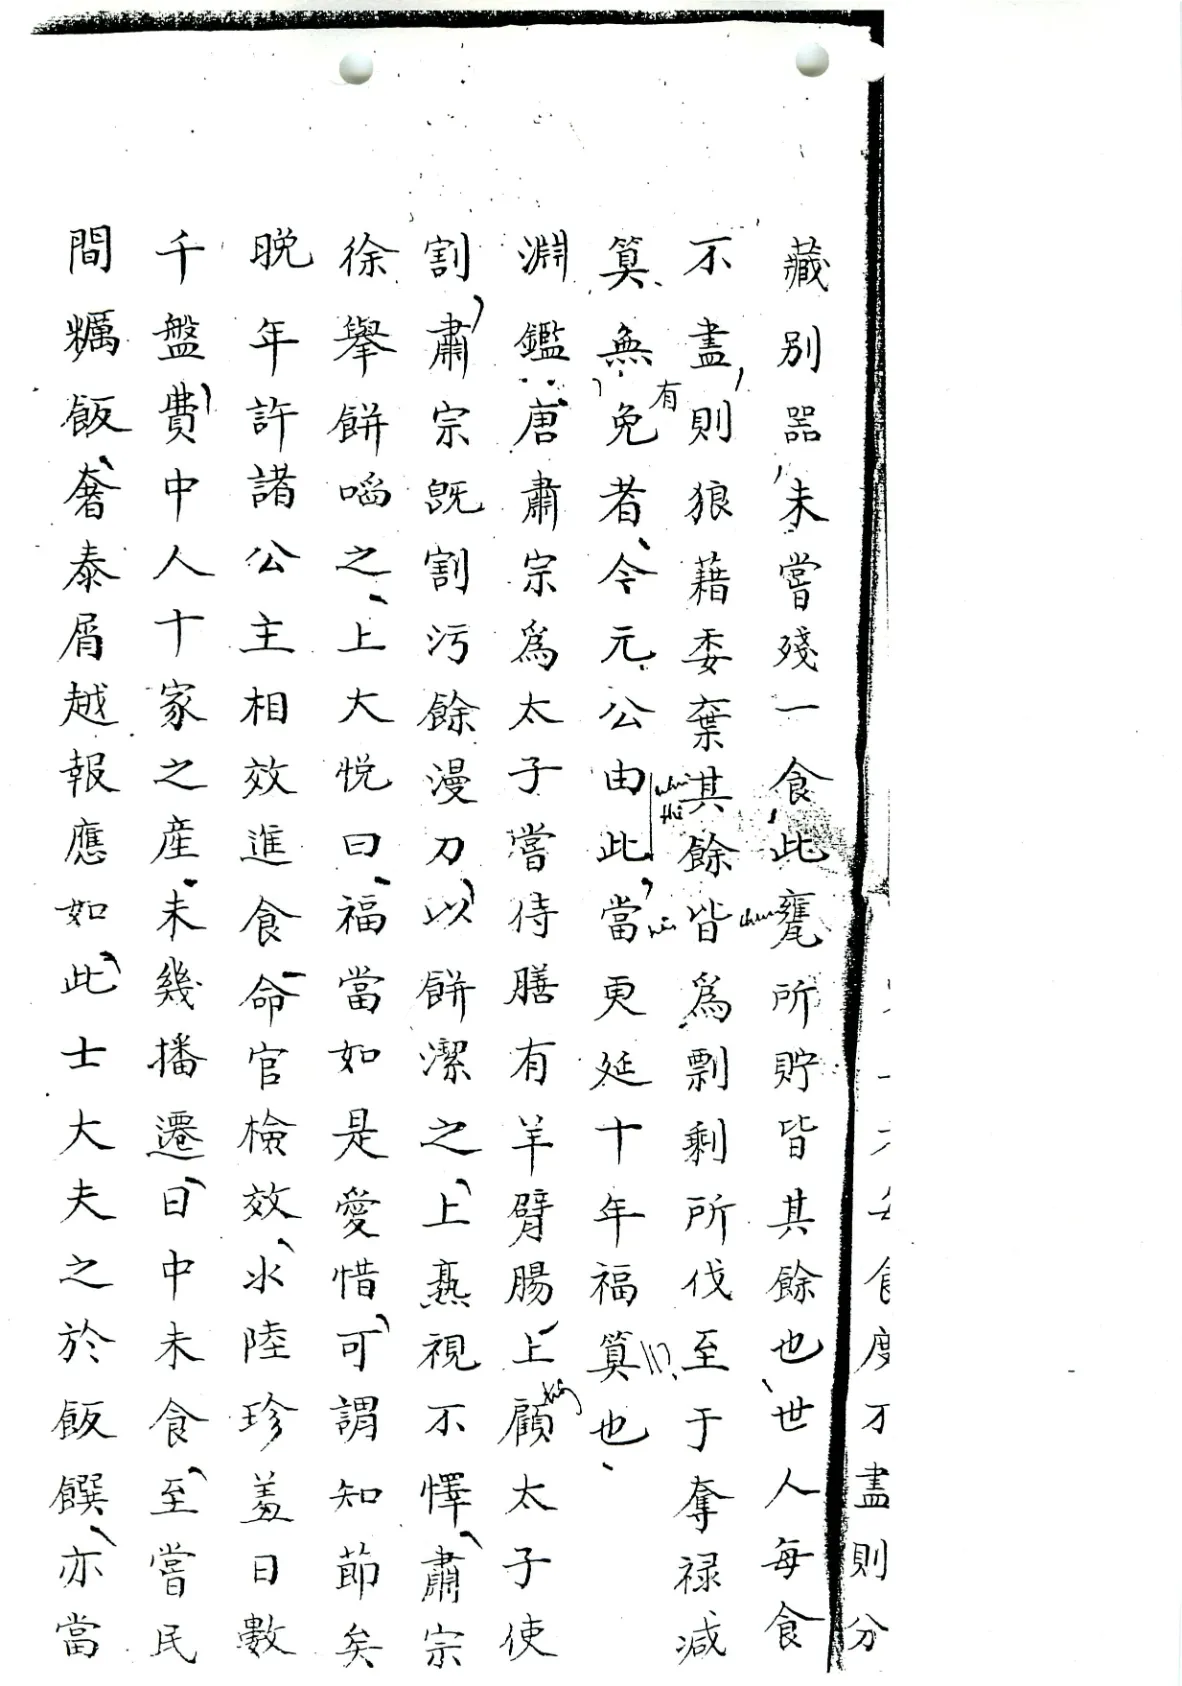 食度不盡則分
藏別器未嘗殘一食此甕所貯皆其餘也世人每食
不盡則狼藉委棄其餘皆爲剽剩所伐至于奪禄减
算無有免者今元公由此當更延十年福算也
淵鑑唐肅宗爲太子嘗侍膳有羊臂腸上顧太子使
割肅宗旣割污餘漫刀以餅潔之上熟視不懌肅宗
徐擧餅啗之上大悦曰福當如是愛惜可謂知節矣
晩年許諸公主相效進食命官檢效氷陸珍羞日數
千盤費中人十家之産未幾播遷日中未食至嘗民
間糲飯奢泰屑越報應如此士大夫之於飯饌亦當